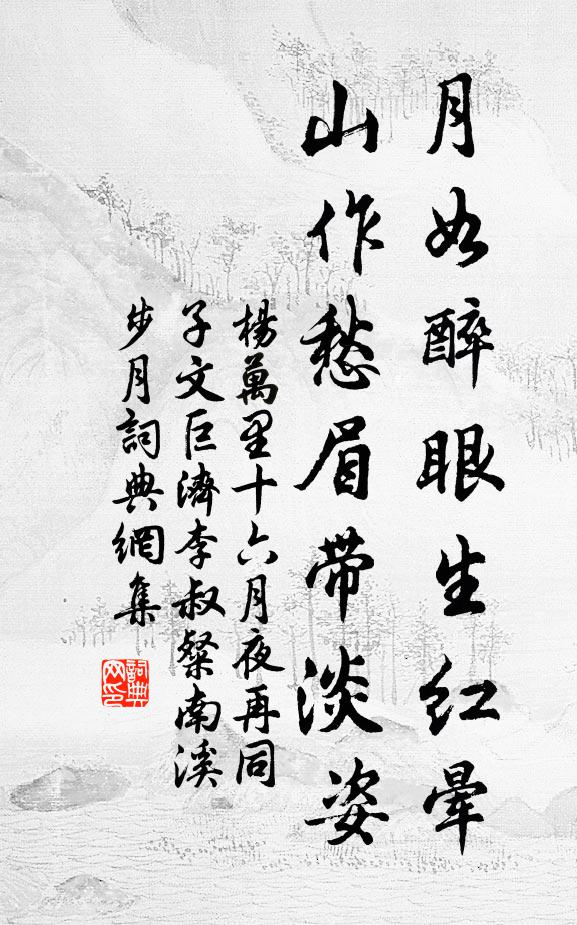 月如醉眼生红晕
山作愁眉带淡姿
楊萬里十六月夜再同
子文巨濟李叔粲南溪
步月詞典網集
詞典
网印